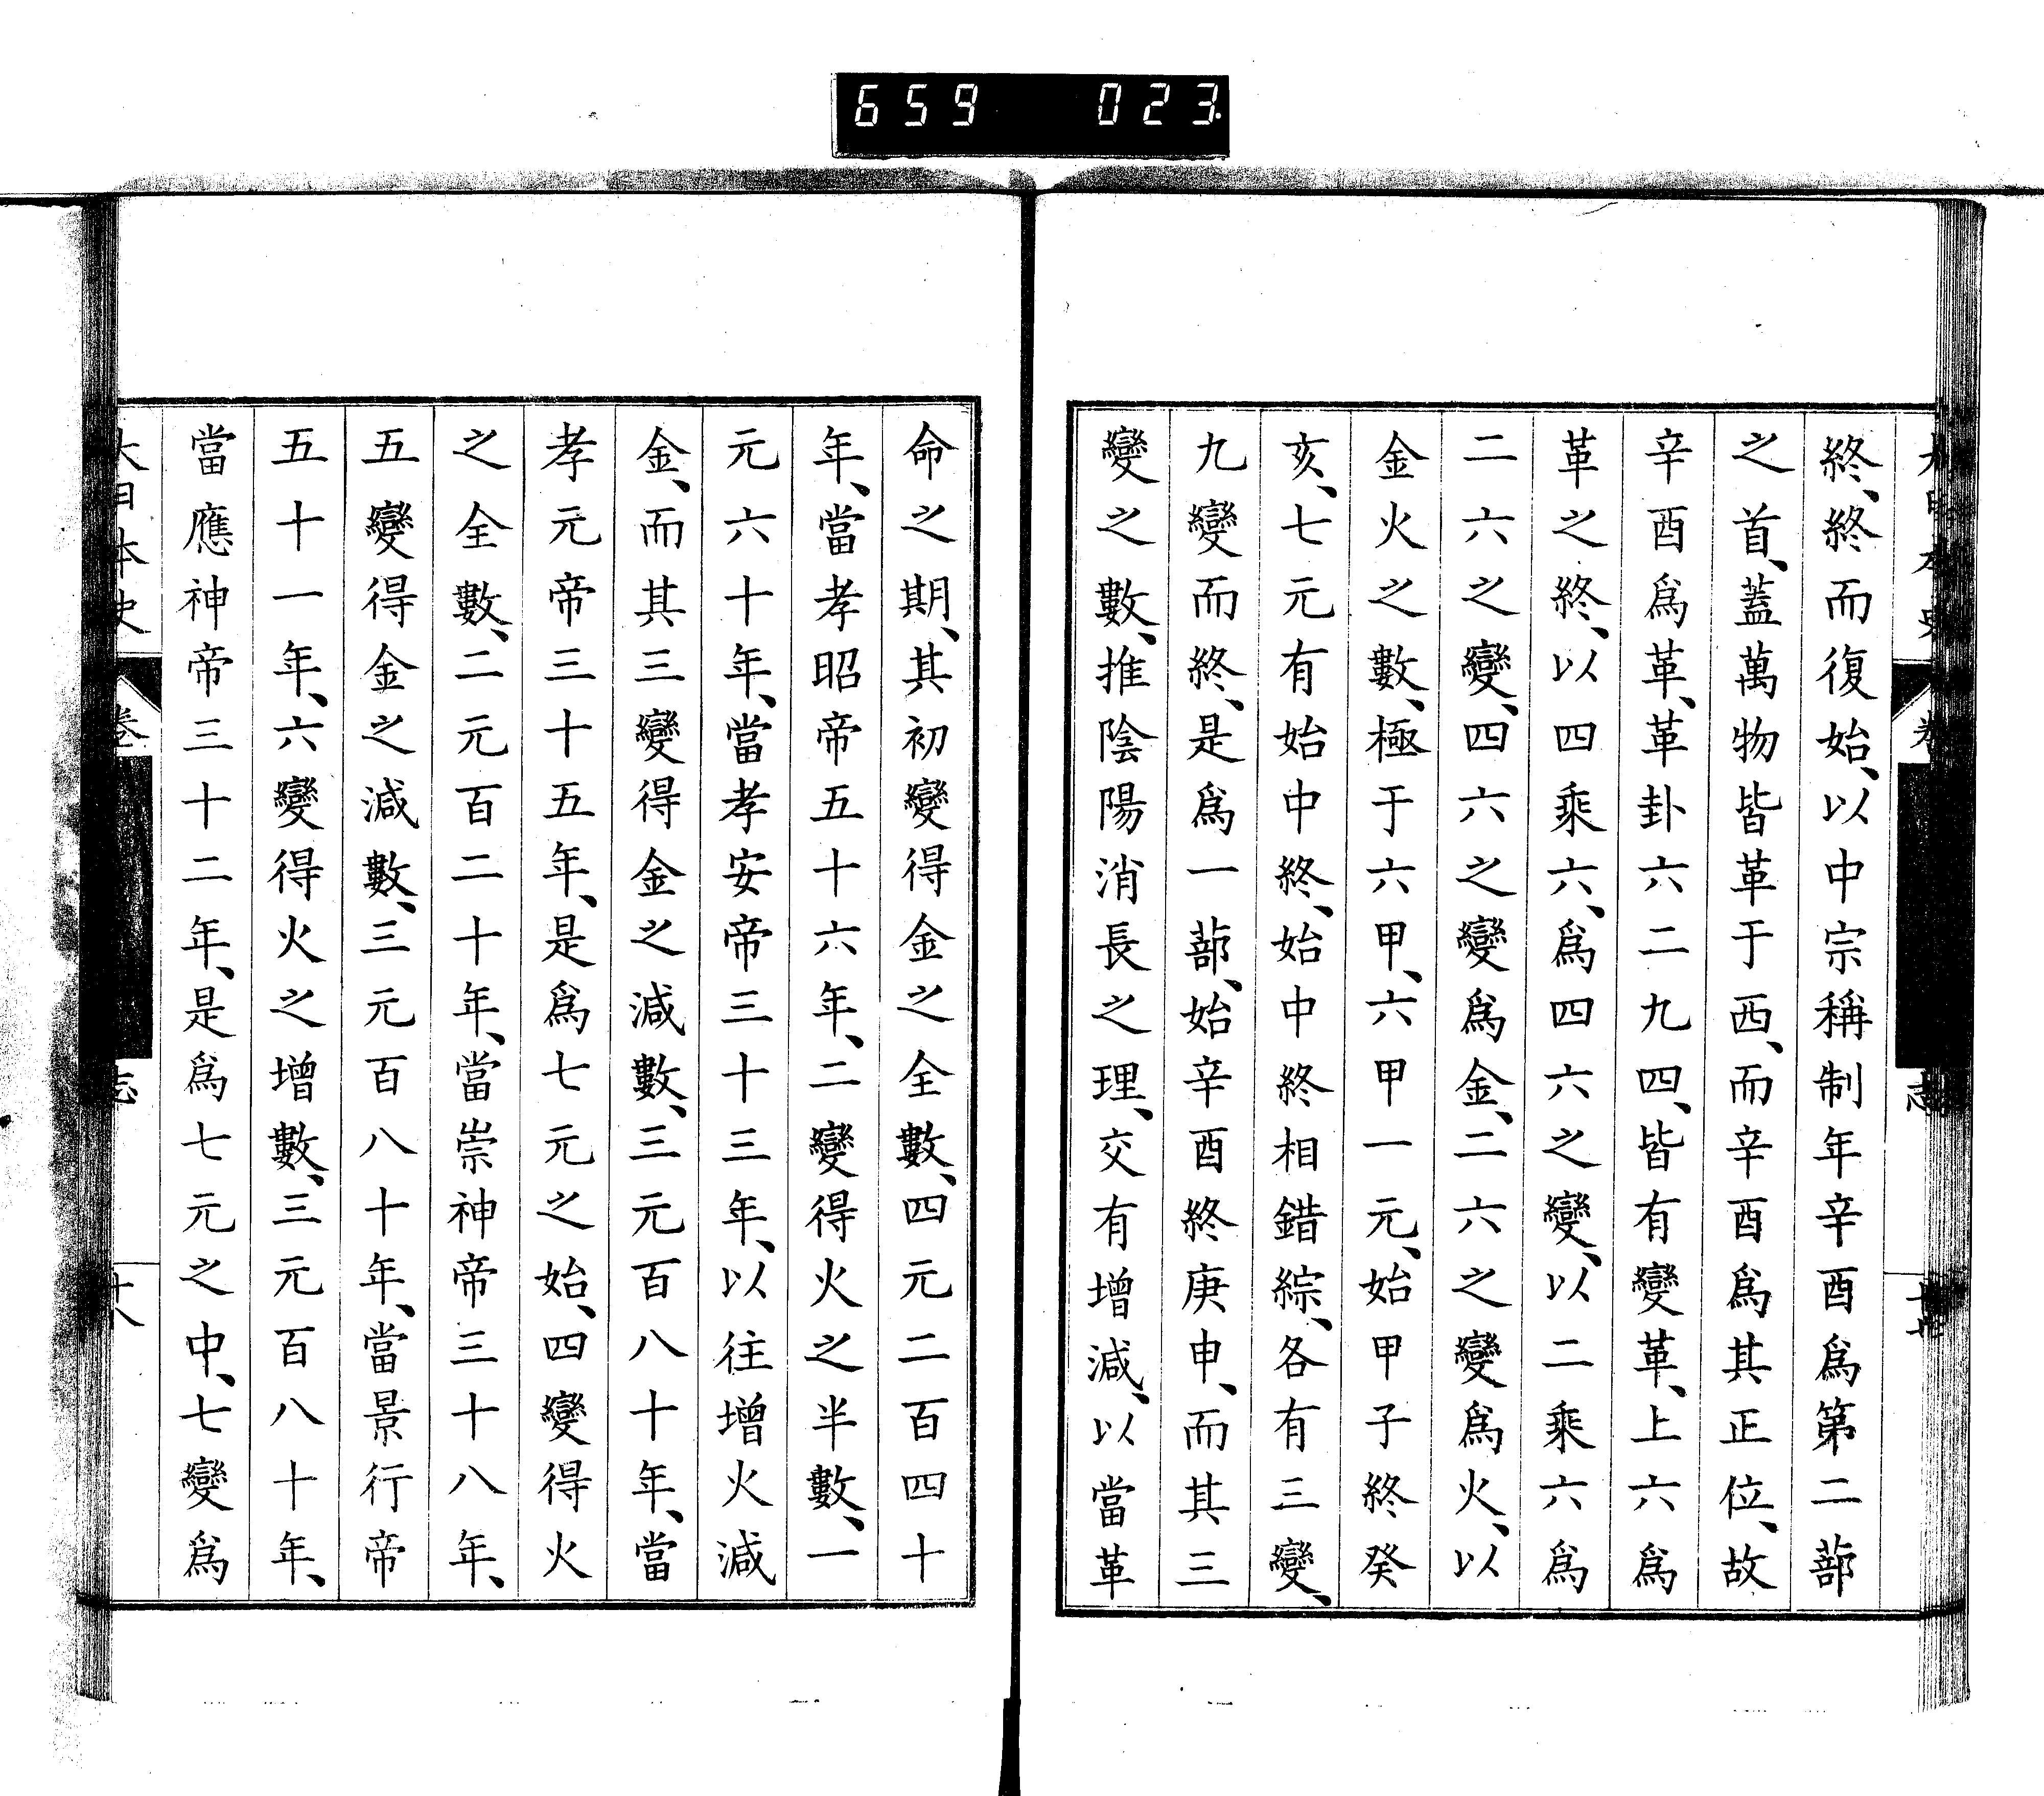 659 023
終、終而復始、以中宗稱制年辛酉爲第二蔀
之首、蓋萬物皆革于西、而辛酉爲其正位、故
辛酉爲革、革卦六二九四、皆有變革、上六爲
革之終、以四乘六、爲四六之變、以二乘六爲
二六之變、四六之變爲金、二六之變爲火、以
金火之數、極于六甲、六甲一元、始甲子終癸
亥、七元有始中終、始中終相錯綜、各有三變、
九變而終、是爲一蔀、始辛酉終庚申、而其三
變之數、推陰陽消長之理、交有增減、以當革
命之期、其初變得金之全數、四元二百四十
年、當孝昭帝五十六年、二變得火之半數、一
元六十年、當孝安帝三十三年、以往增火減
金、而其三變得金之減數、三元百八十年、當
孝元帝三十五年、是爲七元之始、四變得火
之全數、二元百二十年、當崇神帝三十八年、
五變得金之減數、三元百八十年、當景行帝
五十一年、六變得火之增數、三元百八十年、
當應神帝三十二年、是爲七元之中、七變爲
大日本史 卷 志 十八